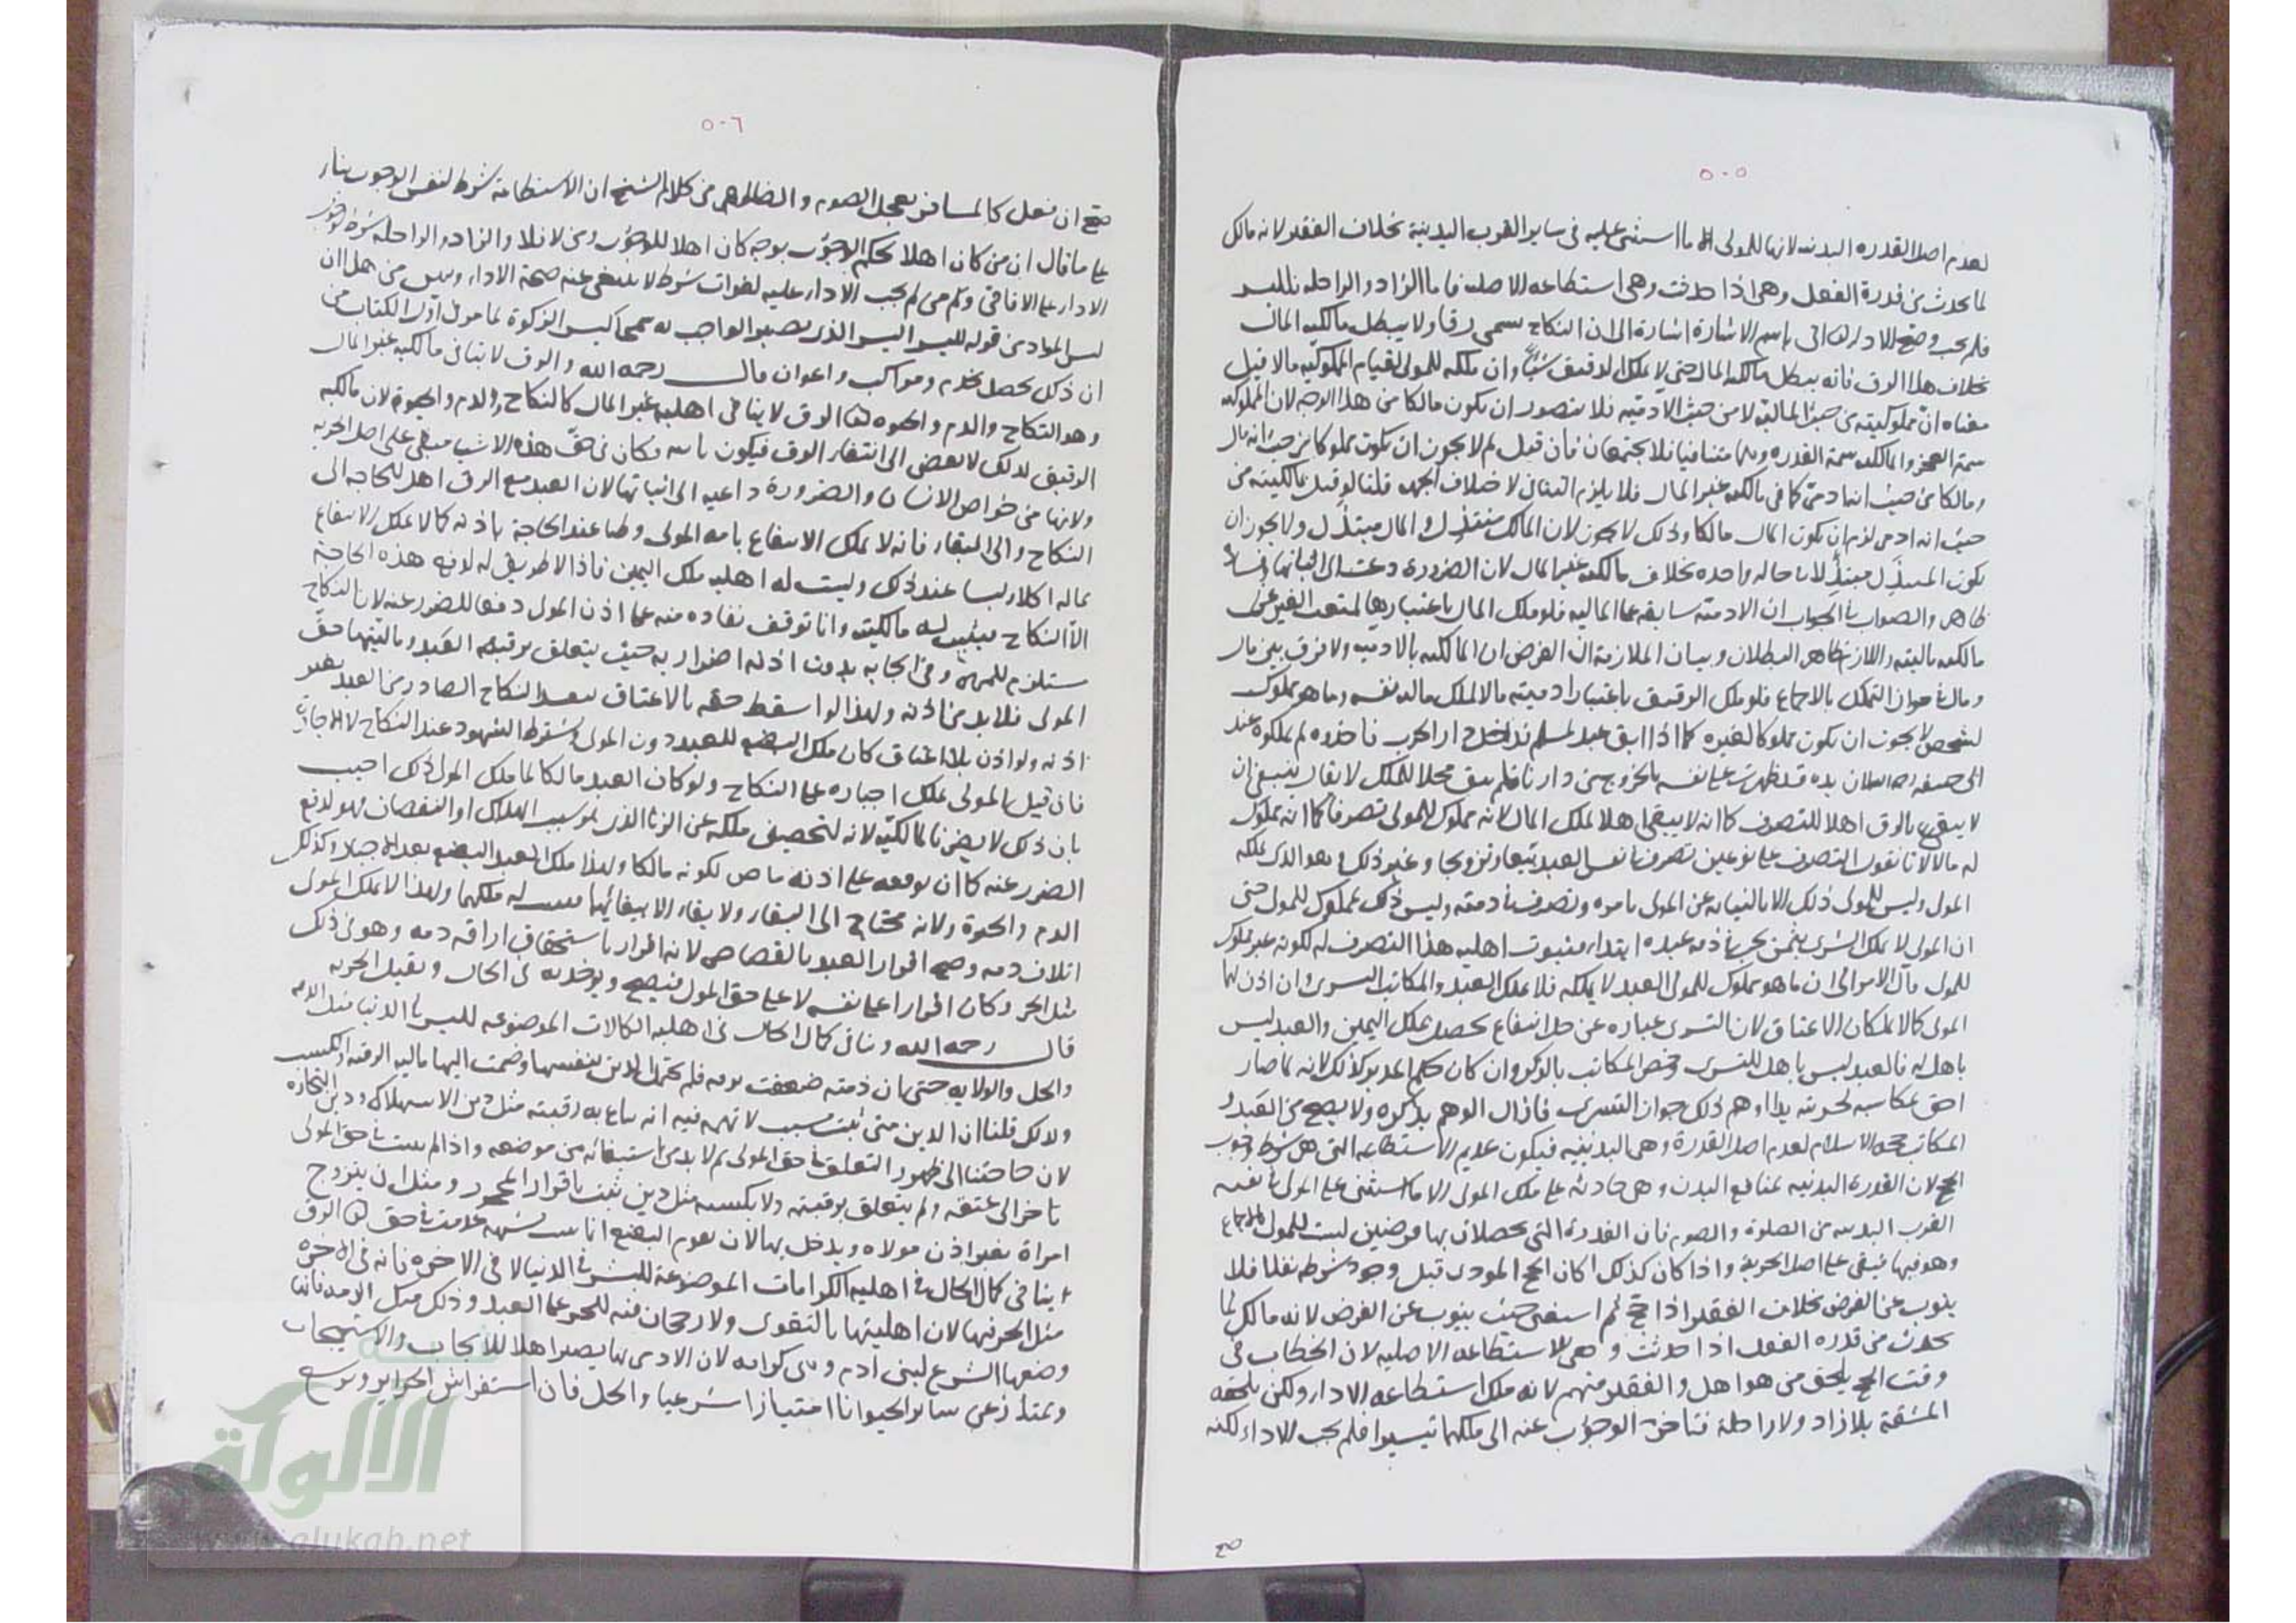 ٥٠٥
لعدم اصل القدرة البدنية لانها للمولى الا ما استثنى عليه في ساير القرب البدنية بخلاف الفقير لانه مالك
لما يحدث من قدرة الفعل وهي اذا حدثت وهي استطاعة الاصلية فاما الزاد والراحلة لليسر
فلم يجب وصح الاداء باسم الاشارة اشارة الى ان النكاح يسمى رقا ولا يبطل مالكية المال
بخلاف هذا الرق فانه يبطل مالكية المال حتى لا يملك الرقيق شيا وان ملكه للمولى لقيام المملوكية مالا قيل
معناه ان مملوكيته من حيث المالية لا من حيث الآدمية فلا يتصور ان يكون مالكا من هذا الوجه لان المملوكية
سمة العجز والمالكية سمة القدرة وبينهما متنافيا فلا يجتمعان فان قيل لم لا يجوز ان يكون مملوكا من حيث انه مال
ومالكا من حيث انه ادمي كما في مالكية غير المال فلا يلزم التنافي لاختلاف الجهة قلنا لو قيل بمالكيته من
حيث انه ادمي لزم ان يكون المال مالكا وذلك لا يجوز لان المالك مبتذِل والمال مبتذَل ولا يجوز ان
يكون المبتذِل مبتذَلا في حالة واحدة بخلاف مالكية غير المال لان الضرورة دعت الى اثباتها
ظاهر والصواب في الجواب ان الادمية سابقة على المالية فلو ملك المال باعتبارها لمنعت الغير عن
مالكية ماليته واللازم ظاهر البطلان وبيان الملازمة ان الفرض ان المالكية بالادمية ولا فرق بين مال
ومال في جواز التملك بالاجماع فلو ملك الرقيق باعتبار ادميته مالا لملك مالية نفسه وما هو مملوك
لشخص لا يجوز ان يكون مملوكا لغيره كما اذا ابق عبد لمسلم فدخل دار الحرب فاخذوه لم يملكوه عند
ابي حنيفة رحمه الله لان يده قد ظهرت على نفسه بالخروج من دارنا فلم يبق محلا للملك لا يقال ينبغي ان
لا يبقى بالرق اهلا للتصرف كما انه لا يبقى اهلا لملك المال لانه مملوك للمولى تصرفا كما انه مملوك
له مالا لانا نقول التصرف على نوعين تصرف في نفس العبد بيعا وتزويجا وغير ذلك وهو الذي يملكه
المولى وليس للمولى ذلك الا بالنيابة عن المولى بامره وتصرف في ذمته وليس ذلك بمملوك للمولى حتى
ان المولى لا يملك الشرى بثمن يجب في ذمة عبده ابتداء فثبوت اهلية هذا التصرف له لكونه غير مملوك
للمولى فآل الامر الى ان ما هو مملوك للمولى العبد لا يملكه فلا يملك العبد والمكاتب التسرى وان اذن لهما
المولى كما لا يملكان الاعتاق لان التسرى عبارة عن حل انتفاع يحصل بملك اليمين والعبد ليس
باهل له فالعبد ليس باهل للتسرى وخص المكاتب بالذكر وان كان حكم المدبر كذلك لانه لما صار
احق بمكاسبه لحريته يدا اوهم ذلك جواز التسرى فازال الوهم بذكره ولا يصح من العبد و
المكاتب حجة الاسلام لعدم اصل القدرة وهي البدنية فيكون عديم الاستطاعة التي هي شرط وجوب
الحج لان القدرة البدنية بمنافع البدن وهي حادثة على ملك المولى الا ما استثنى على المولى في نفسه
القرب البدنية من الصلوة والصوم فان القدرة التي تحصلان بها فرضين ليست للمولى بالاجماع
وهو فيها مبقى على اصل الحرية واذا كان كذلك كان الحج المؤدى قبل وجود شرطه نفلا فلا
ينوب عن الفرض بخلاف الفقير اذا حج ثم استغنى حيث ينوب عن الفرض لانه مالك لما
يحدث من قدرة الفعل اذا حدثت وهي الاستطاعة الاصلية لان الخطاب في
وقت الحج يلحق من هو اهل والفقير منهم لانه ملك استطاعة الاداء ولكن يلحقه
المشقة بلا زاد ولا راحلة فتاخر الوجوب عنه الى ملكهما تيسيرا فلم يجب الاداء لكنه
٥٠٦
صح ان فعل كالمسافر يعجل الصوم والظاهر من كلام الشيخ ان الاستطاعة شرط لنفس الوجوب بناء
على ما قال ان من كان اهلا لحكم الوجوب بوجه كان اهلا للوجوب ومن لا فلا والزاد والراحلة شرط وجوب
الاداء على الافاقي وكم من لم يجب الاداء عليه لفوات شرط لا ينتفي عنه صحة الاداء وليس من
ليس المراد من قوله لليسر اليسر الذي يصير الواجب به سمحا كيسر الزكوة لما مر في اول الكتاب من
ان ذلك يحصل بخدم ومراكب واعوان قال رحمه الله والرق لا ينافي مالكية غير المال
وهو النكاح والدم والحيوة الرق لا ينافي اهلية غير المال كالنكاح والدم والحيوة لان مالكية
الرقيق لذلك لا يفضي الى انتفاء الرق فيكون فكان في حق هذه الاشياء مبقى على اصل الحرية
ولانها من خواص الانسان والضرورة داعية الى اثباتها لان العبد مع الرق اهل للحاجة الى
النكاح والى البقاء فانه لا يملك الانتفاع بامة المولى وطيا عند الحاجة باذنه كما لا يملك الانتفاع
بماله اكلا ولبسا عند ذلك وليست له اهلية ملك اليمين فاذا لا طريق له لدفع هذه الحاجة
الا النكاح فيثبت له مالكيته وانما توقف نفاذه منه على اذن المولى دفعا للضرر عنه لان النكاح
يستلزم للمهر وفي ايجابه بدون اذنه اضرار به حيث يتعلق برقبة العبد وماليتها حق
المولى فلا بد من اذنه ولهذا لو اسقط حقه بالاعتاق بعد النكاح الصادر من العبد بغير
اذنه ولو اذن بلا اعتاق كان ملك البضع للعبد دون المولى ويشترط الشهود عند النكاح لا الاجازة
فان قيل المولى يملك اجباره على النكاح ولو كان العبد مالكا لما ملك المولى ذلك اجيب
بان ذلك لا يضرنا لمالكيته لانه لتحصين ملكه عن الزنا الذي هو سبب الهلاك او النقصان فهو لدفع
الضرر عنه كما ان توقفه على اذنه لكونه مالكا ولهذا ملك العبد البضع بعد الاجبار وكذلك
الدم والحيوة ولانه يحتاج الى البقاء ولا بقاء الا ببقائهما فيثبت له ملكهما ولهذا لا يملك المولى
اتلاف دمه وصح اقرار العبد بالقصاص لانه اقرار باستحقاق اراقة دمه وهو في ذلك
مثل الحر وكان اقرارا على نفسه لا على حق المولى فيصح ويؤخذ به في الحال وبقيل الحرية
قال رحمه الله وينافي كمال الحال في اهلية الكرامات الموضوعة للبشر في الدنيا مثل الذمة
والحل والولاية حتى ان ذمته ضعفت برقه فلم يحتمل الدين بنفسها وضمت اليها مالية الرقبة والكسب
ولذلك قلنا ان الدين متى ثبت بسبب لا تهمة فيه انه يباع به رقبته مثل دين الاستهلاك ودين التجارة
لان حاجتنا الى ظهور التعلق في حق المولى ثم لا بد من استيفائه من موضعه واذا لم يثبت في حق المولى
تاخر الى عتقه ولم يتعلق برقبته ولا بكسبه مثل دين ثبت باقرار المحجور ومثل ان يتزوج
امراة بغير اذن مولاه ويدخل بها لان تقوم البضع انما ثبت بشبهة عدمت في حق الرق
ينافي كمال الحال في اهلية الكرامات الموضوعة للبشر في الدنيا لا في الاخرة فانه في الاخرة
مثل الحر فيها لان اهليتها بالتقوى ولا رجحان فيه للحر على العبد وذلك مثل الذمة فانها
وضعها الشرع لبني ادم وهي كرامة لان الادمي بها يصير اهلا للايجاب والاستيجاب
ويمتاز عن ساير الحيوانات امتيازا شرعيا والحل فان استفراش الحراير وتوسع
شبكة
الألوكة
www.alukah.net